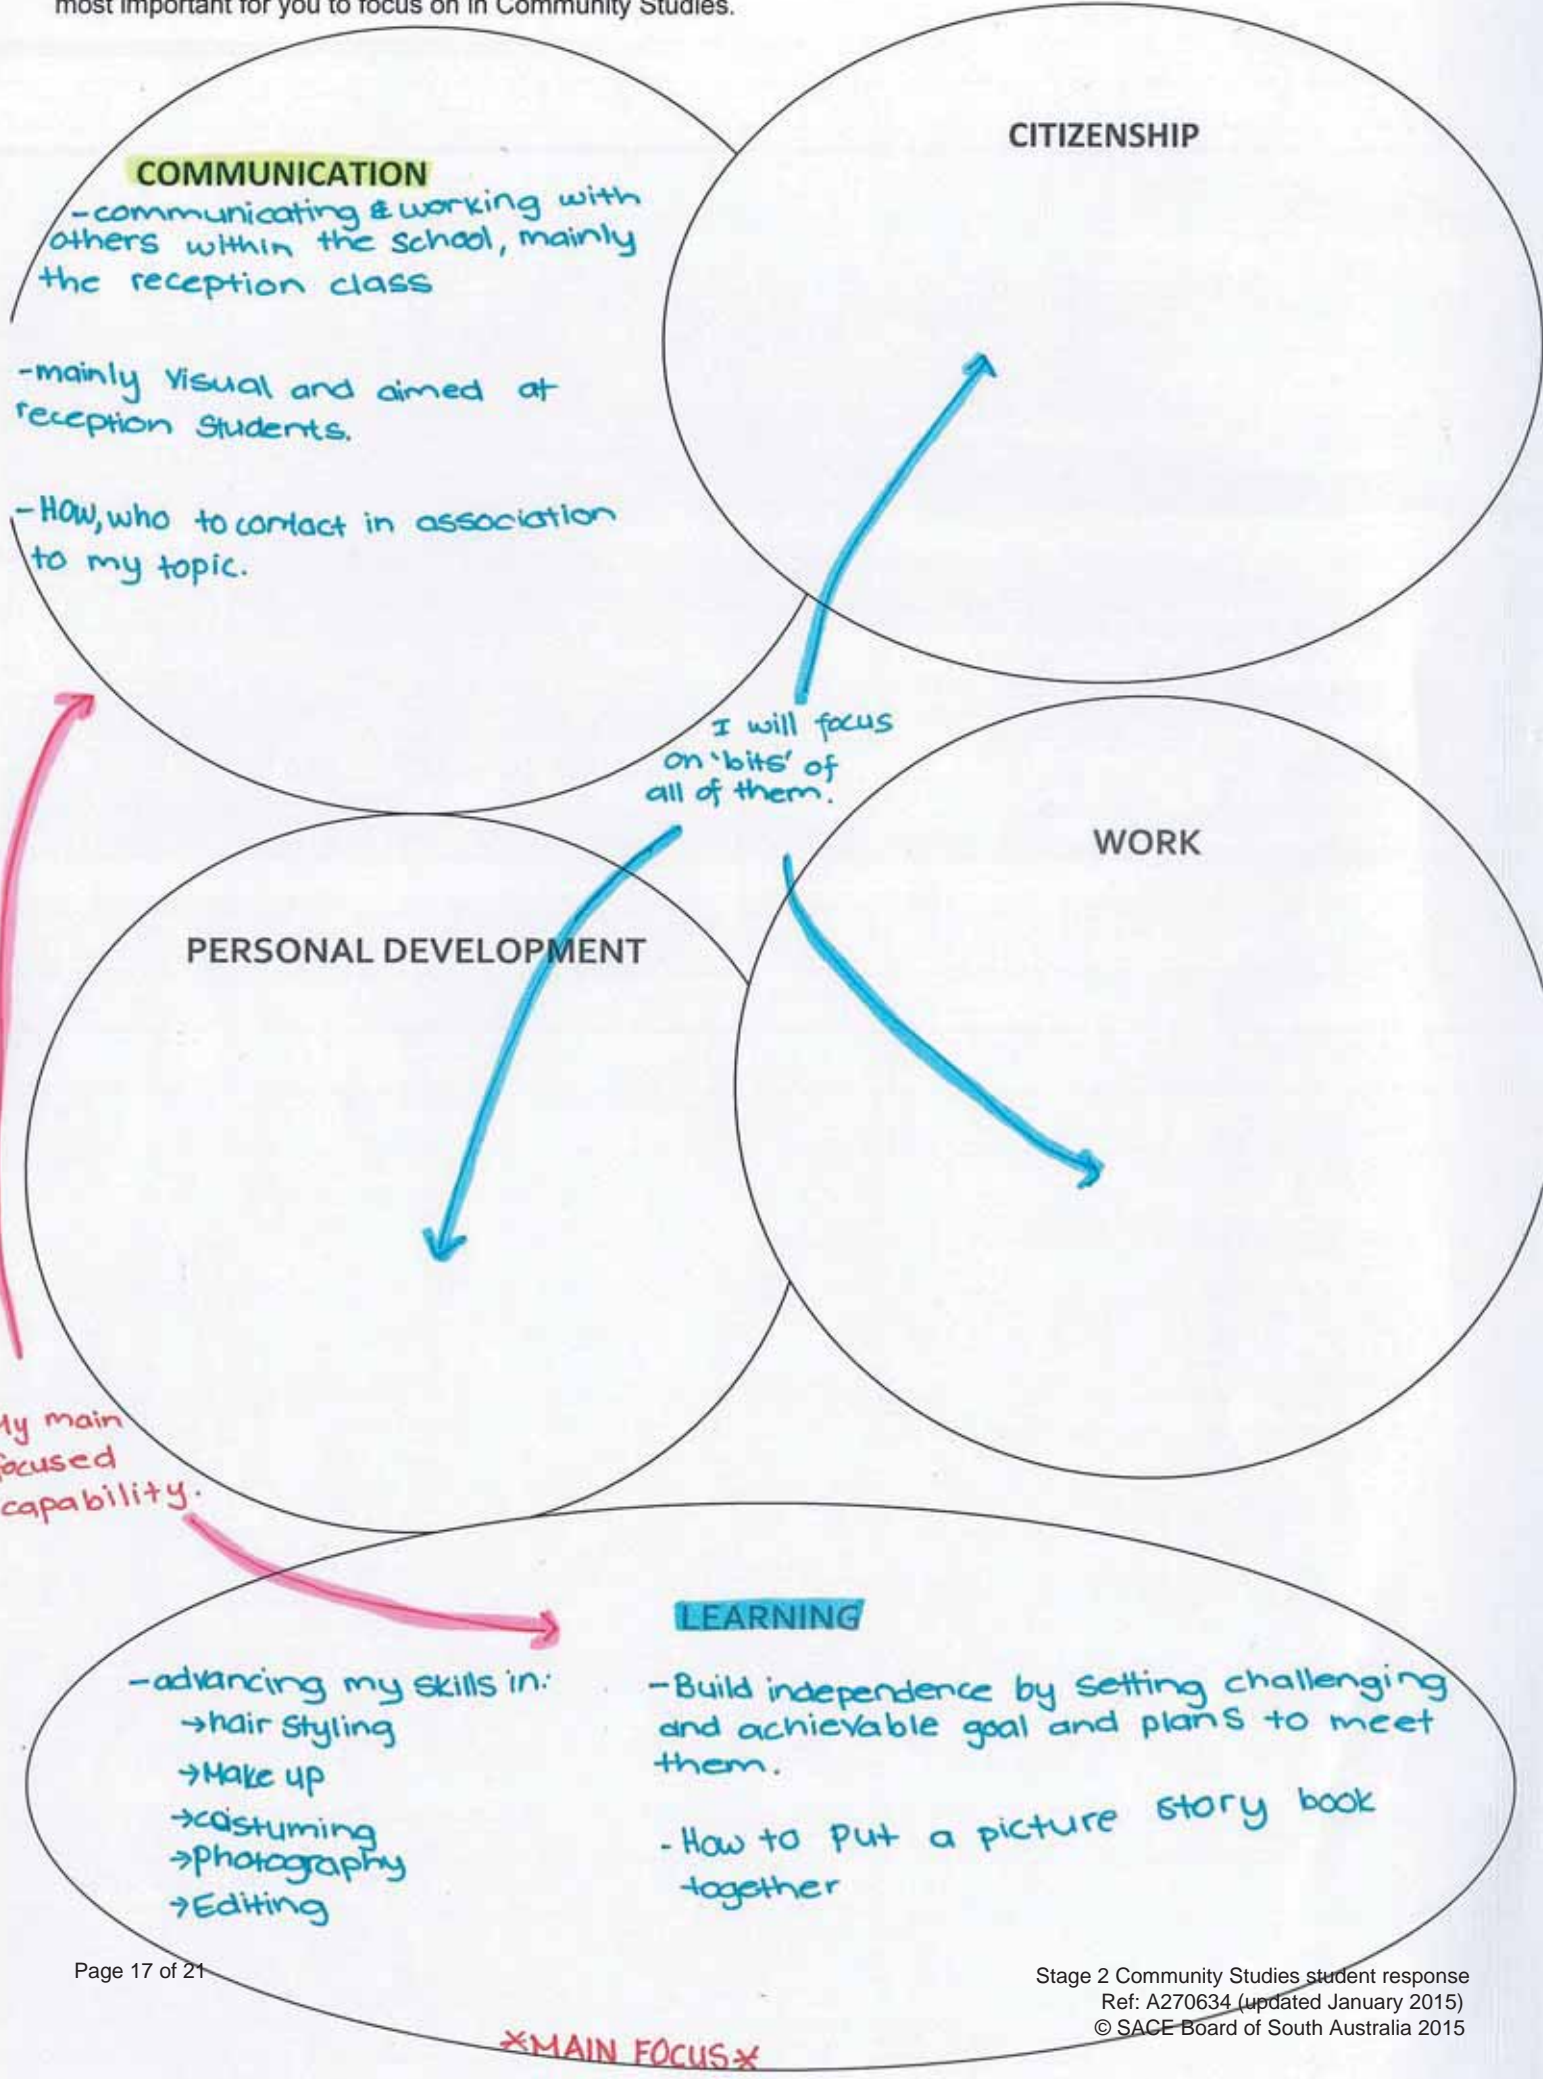 most important for you to focus on in Community Studies.
COMMUNICATION
-communicating & working with
others within the school, mainly
the reception class
-mainly visual and aimed at
reception students.
-How, who to contact in association
to my topic.
CITIZENSHIP
I will focus
on 'bits' of
all of them.
WORK
PERSONAL DEVELOPMENT
My main
focused
capability.
LEARNING
-advancing my skills in:
→hair styling
→Make up
→costuming
→Photography
→Editing
-Build independence by setting challenging
and achievable goal and plans to meet
them.
- How to put a picture story book
together
*MAIN FOCUS*
Page 17 of 21
Stage 2 Community Studies student response
Ref: A270634 (updated January 2015)
© SACE Board of South Australia 2015